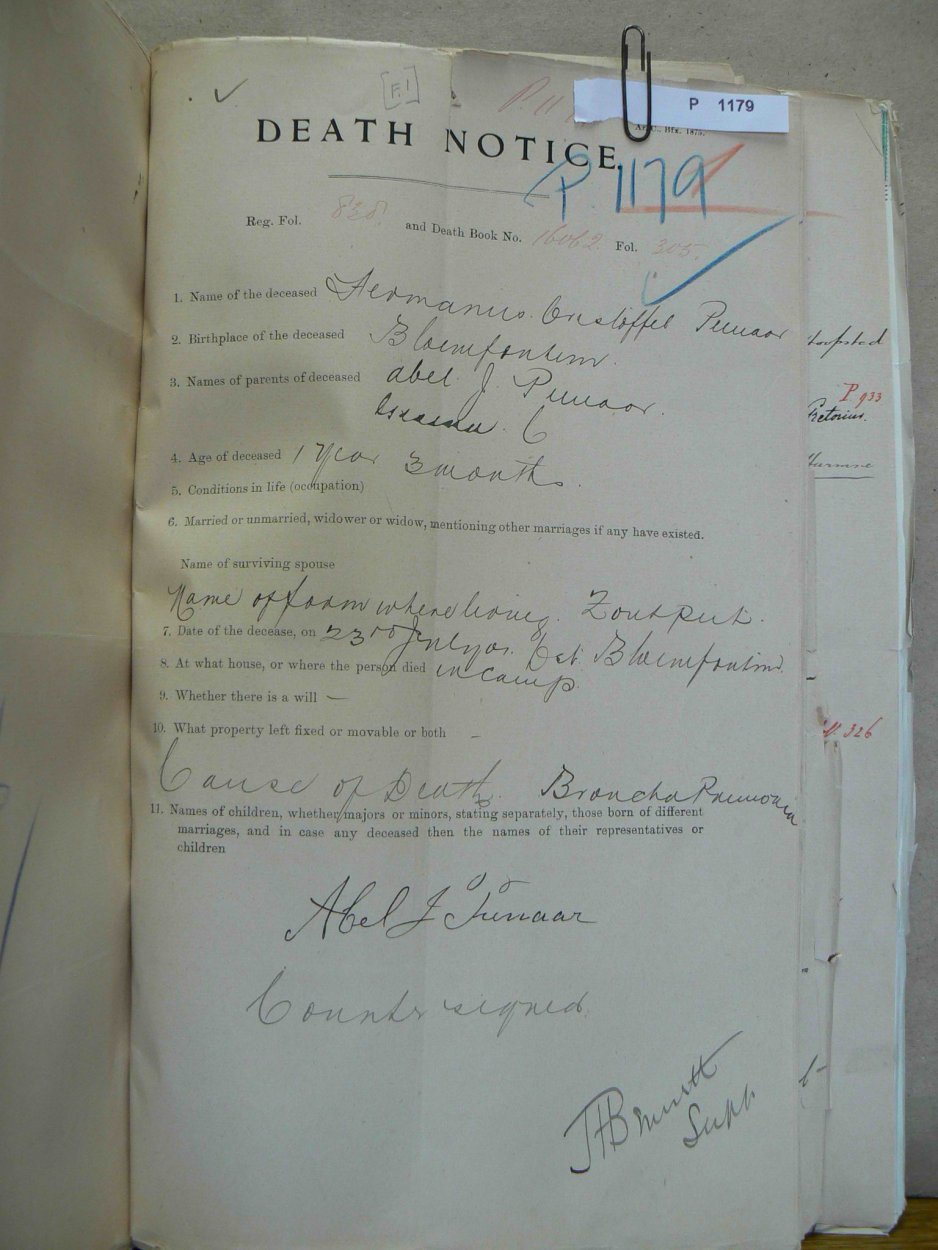 [F.1]
P 11
P 1179
DEATH NOTICE.
P. 1179
Reg. Fol. 828 and Death Book No. 16062 Fol. 305.
1. Name of the deceased Hermanus. Cristoffel Pienaar
2. Birthplace of the deceased Bloemfontein.
3. Names of parents of deceased Abel J. Pienaar.
C
4. Age of deceased 1 Year 3 months.
5. Conditions in life (occupation)
6. Married or unmarried, widower or widow, mentioning other marriages if any have existed.
Name of surviving spouse
Name of farm where living. Zoutput.
7. Date of the decease, on 23rd July 01. Dst. Bloemfontein.
8. At what house, or where the person died in camp.
9. Whether there is a will —
10. What property left fixed or movable or both –
Cause of Death. Broncho Pneumonia
11. Names of children, whether majors or minors, stating separately, those born of different
marriages, and in case any deceased then the names of their representatives or
children
Abel J Pienaar
Counter signed.
Supt
P 933
Pretorius.
326